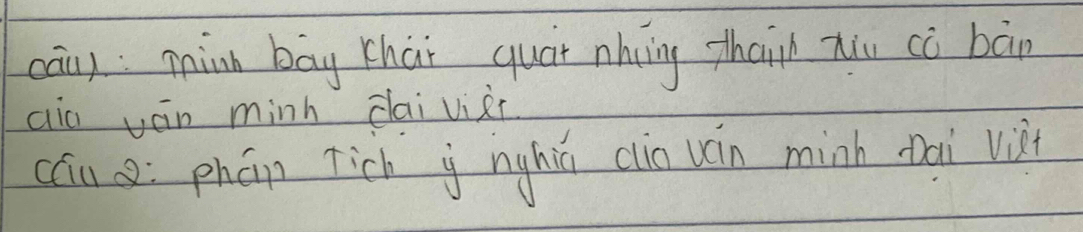 câu1: Trình bày khái quát những thành tựu cơ bản
của văn minh đại việt.
Câu 2: phân tích ý nghĩa của văn minh Đại Việt